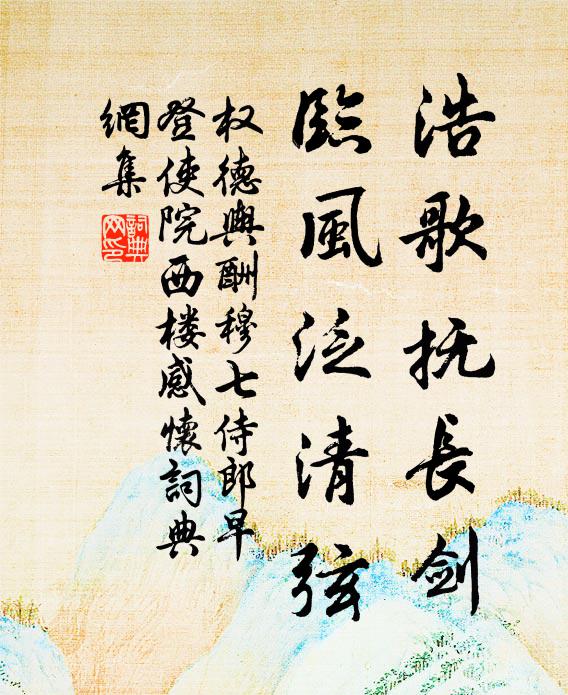 浩歌抚長劍
臨風泛清弦
权德輿酬穆七侍郎早
登使院西楼感懷詞典
網集
詞典網印